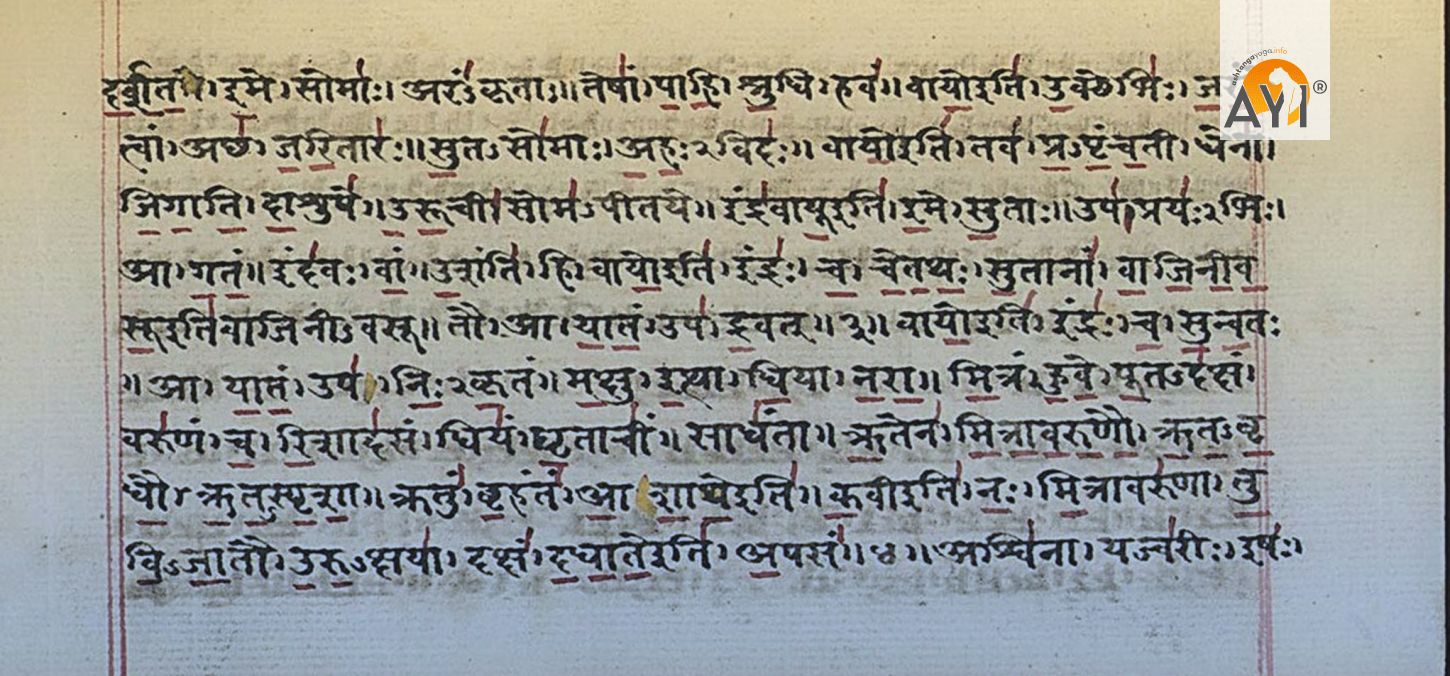 दर्शत। इमे। सोमाः। अरंऽकृताः॥ तेषां। पाहि। श्रुधि। हवं॥ वायोइति। उक्थेभिः।
त्वां। अच्छ। जरितारः॥ सुतऽसोमाः। अहःऽविदः॥ वायोइति। तव। प्रऽपृंचती। धेना।
जिगाति। दाशुषे॥ उरूची। सोमऽपीतये॥ इंद्रवायूइति। इमे। सुताः॥ उप। प्रयःऽभिः।
आ। गतं॥ इंदवः। वां। उशंति। हि॥ वायोइति। इंद्रः। च। चेतथः। सुतानां। वाजिनीव
सूइतिवाजिनीऽवसू॥ तौ। आ। यातं। उप। द्रवत्॥ ३॥ वायोइति। इंद्रः। च। सुन्वतः
। आ। यातं। उप। निःऽकृतं॥ मक्षु। इत्था। धिया। नरा॥ मित्रं। हुवे। पूतऽदक्षं।
वरुणं। च। रिशादसं। धियं। घृताचीं। साधंता॥ ऋतेन। मित्रावरुणौ। ऋतऽवृ
धौ। ऋतऽस्पृशा॥ क्रतुं। बृहंतं। आशाथेइति॥ कवीइति। नः। मित्रावरुणा। तु
विऽजातौ। उरुऽक्षया। दक्षं। दधातेइति। अपसं॥ ४॥ अश्विना। यज्वरीः। इषः।
ashtangayoga.info
AYI®